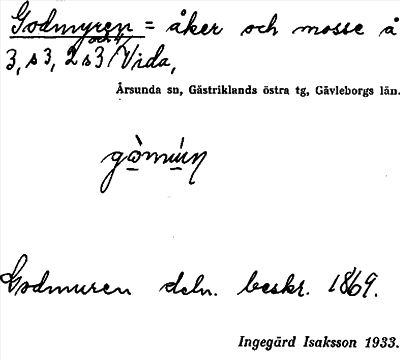 Godmyren = åker och mosse å
3, s3, 2 s3 och 4/ Vida,
Årsunda sn, Gästriklands östra tg, Gävleborgs län.
Godmuren deln. beskr. 1869.
Ingegärd Isaksson 1933.